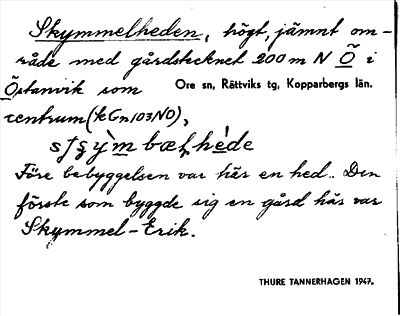 Skymmelheden, högt, jämnt om-
råde med gårdstecknet 200 m N Ö i
Östanvik som
Ore sn, Rättviks tg, Kopparbergs län.
centrum (k Gn 103 NO),
Före bebyggelsen var här en hed.. Den
förste som byggde sig en gård här var
Skymmel-Erik.
THURE TANNERHAGEN 1947.